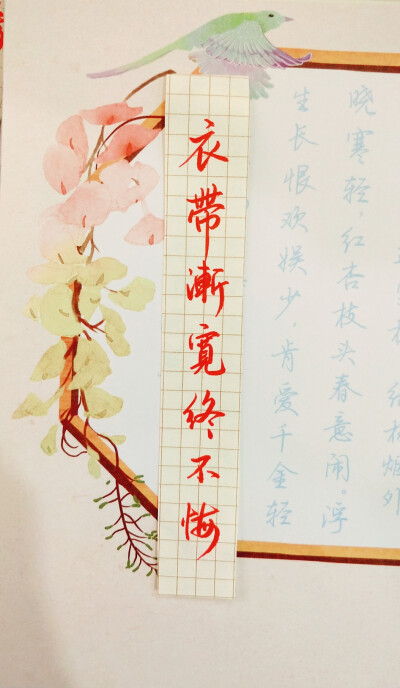 烟外
晓寒轻,红杏枝头春意闹。浮
生长恨欢娱少,肯爱千金轻
衣帶漸寬終不悔